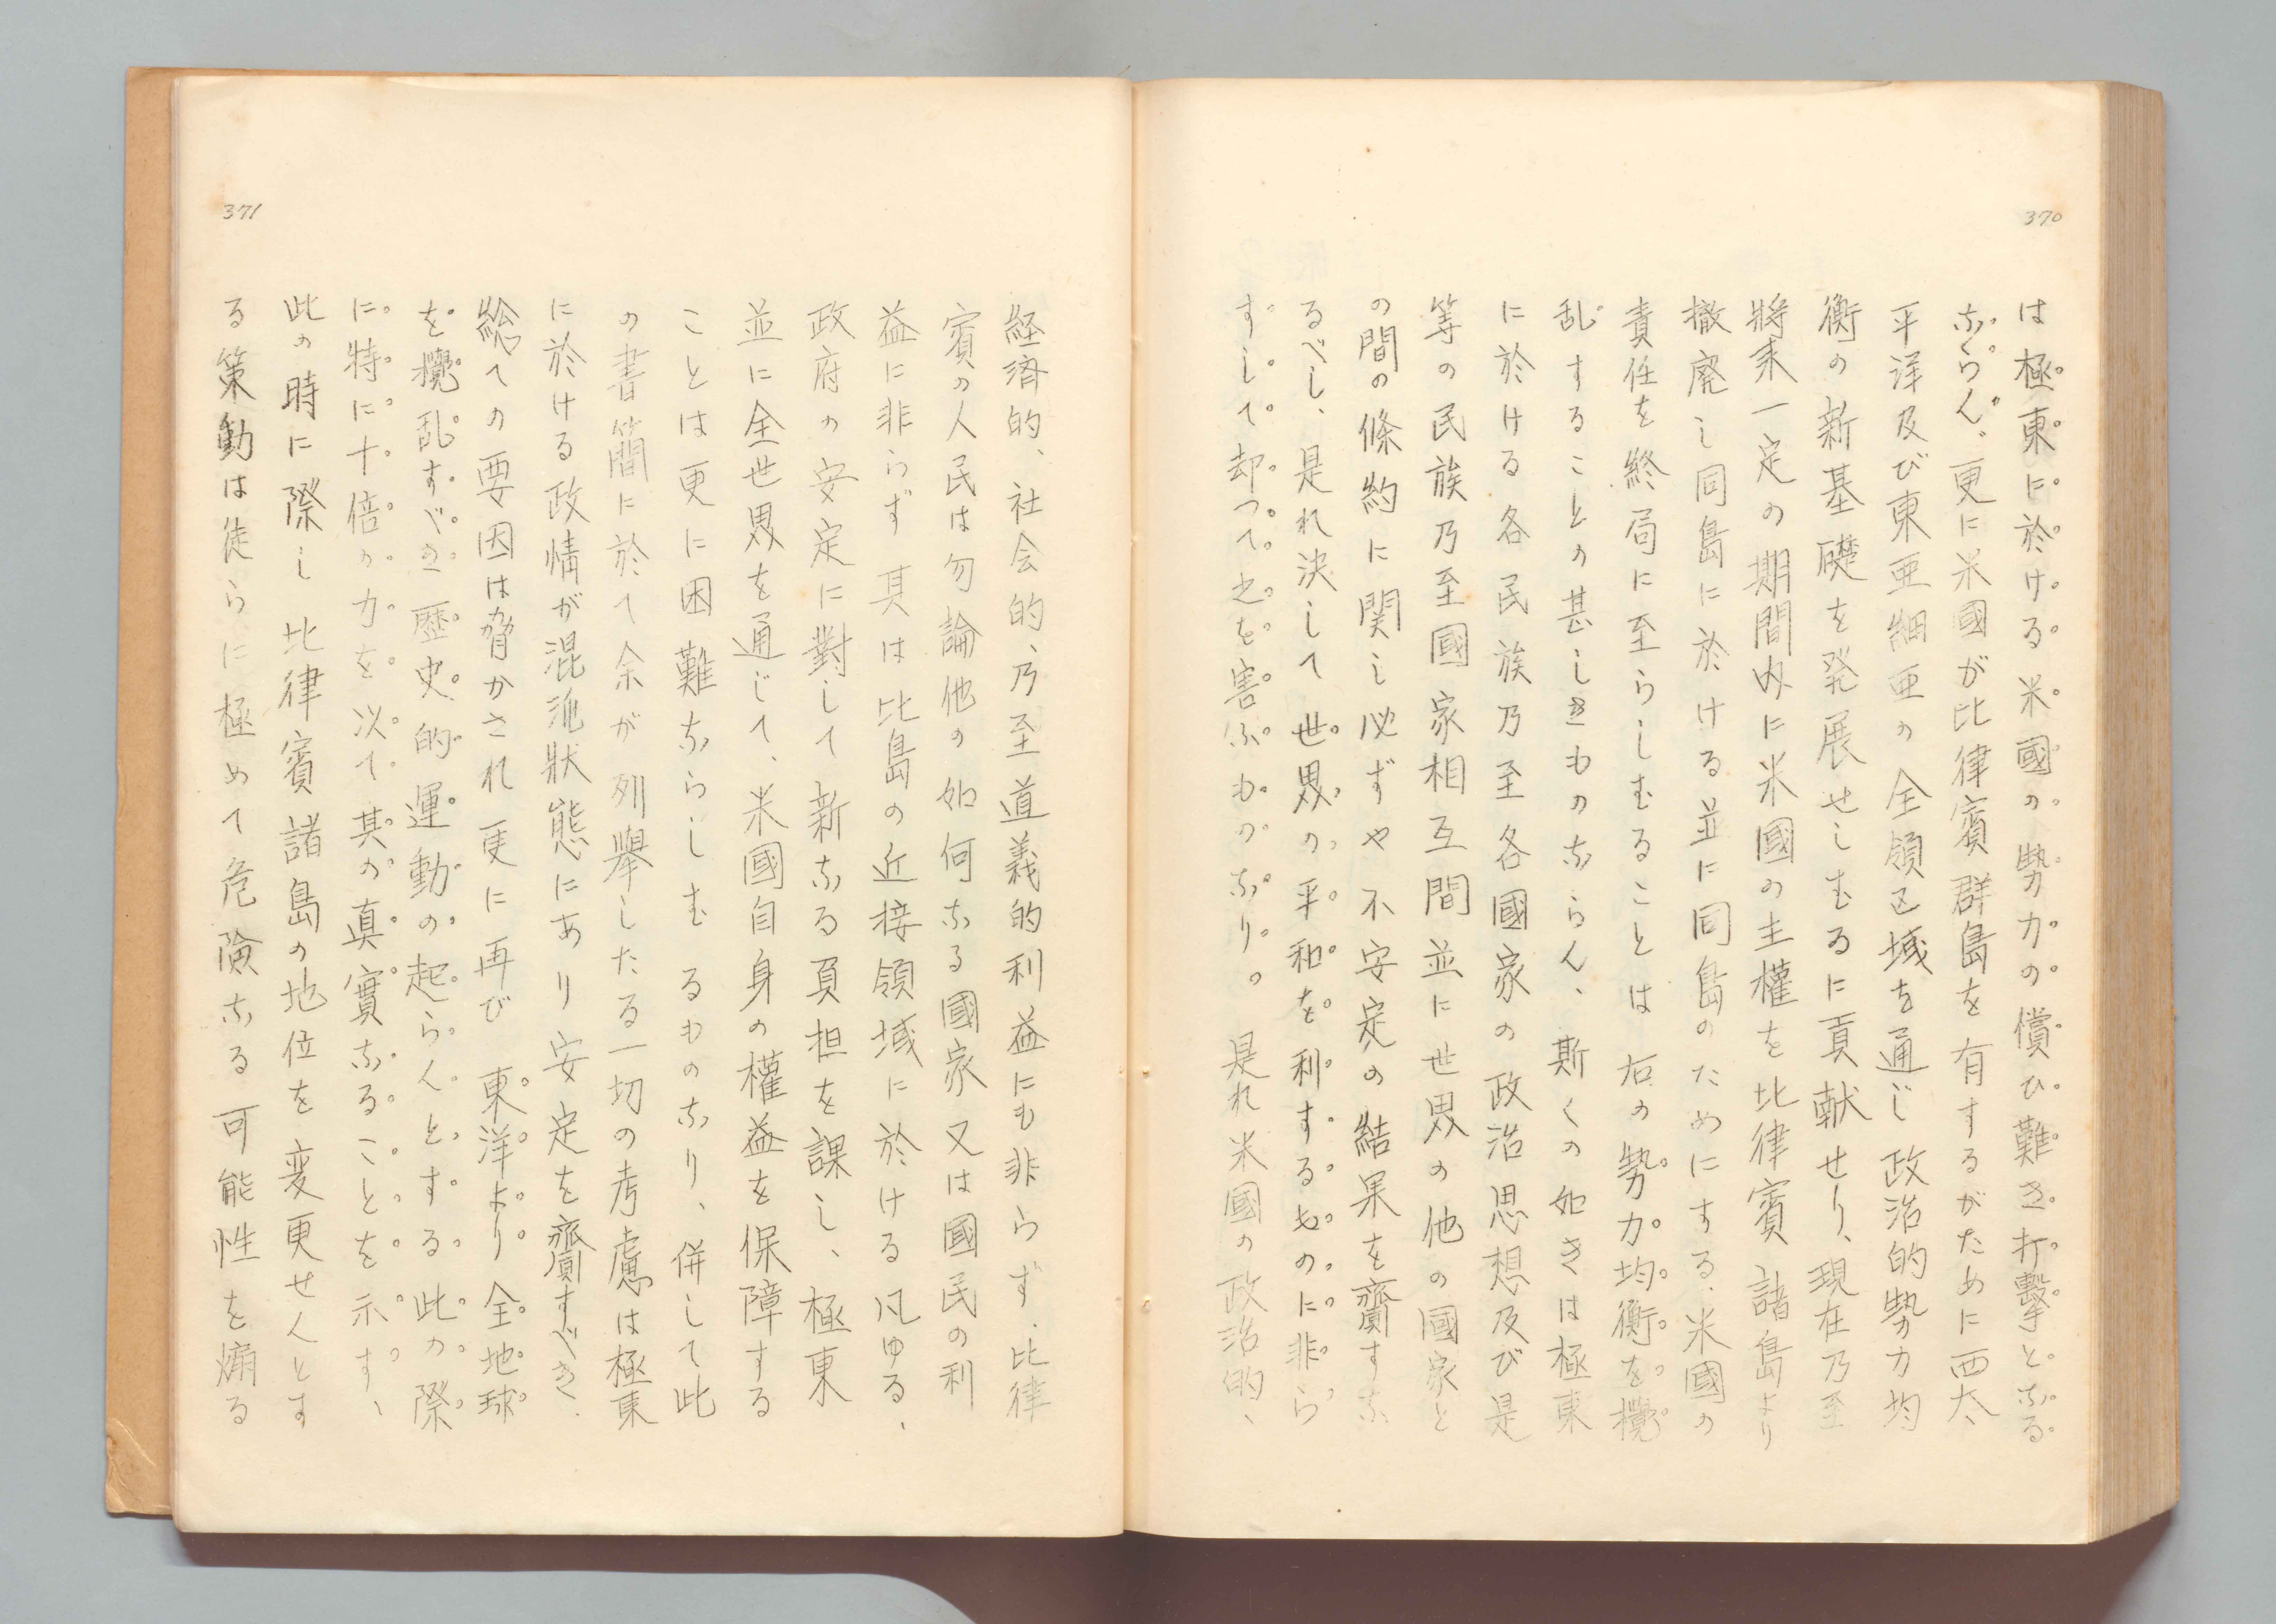 370
は極東に於ける米國の勢力の償ひ難き打擊となる
ならん、更に米國が比律賓群島を有するがために西太
平洋及び東亜細亜の全領区域を通じ政治的勢力均
衡の新基礎を発展せしむるに貢献せり、現在乃至
將来一定の期間内に米國の主權を比律賓諸島より
撤廃し同島に於ける並に同島のためにする、米國の
責任を終局に至らしむることは右の勢力均衡を攪
乱することの甚しきものならん、斯くの如きは極東
に於ける各民族乃至各國家の政治思想及び是
等の民族乃至國家相互間並に世界の他の國家と
の間の條約に関し必ずや不安定の結果を齎すな
るべし、是れ決して世界の平和を利するものに非ら
ずして却つて之を害ふものなり。是れ米國の政治的、
371
経済的、社会的、乃至道義的利益にも非らず、比律
賓の人民は勿論他の如何なる國家又は國民の利
益に非らず其は比島の近接領域に於ける凡ゆる、
政府の安定に對して新なる負担を課し、極東
並に全世界を通じて、米國自身の權益を保障する
ことは更に困難ならしむるものなり、併して此
の書簡に於て余が列擧したる一切の考慮は極東
に於ける政情が混沌狀態にあり安定を齎すべき、
総ての要因は脅かされ更に再び東洋より全地球
を攪乱すべき歴史的運動の起らんとする此の際
に特に十倍の力を以て其の真實なることを示す、
此の時に際し比律賓諸島の地位を変更せんとす
る策動は徒らに極めて危険なる可能性を煽る